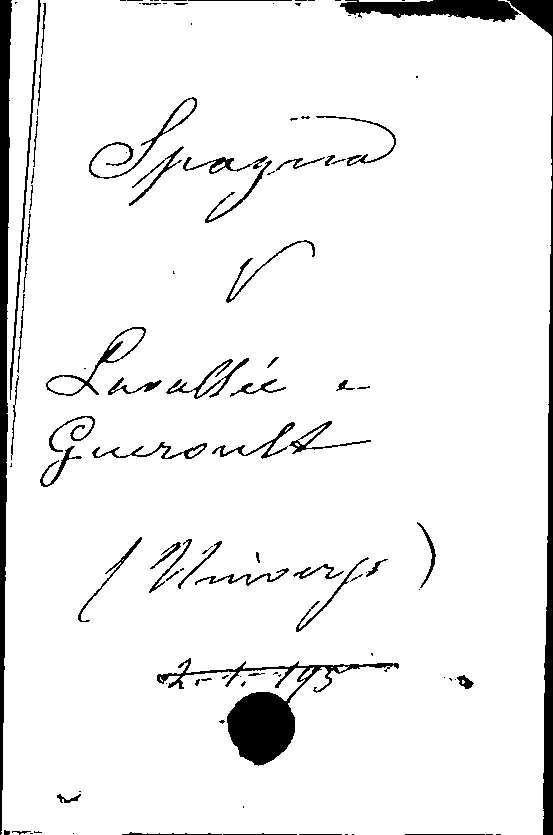 Spagna
V
Lavallée e
Gueroult
(Univers)
2-1-195